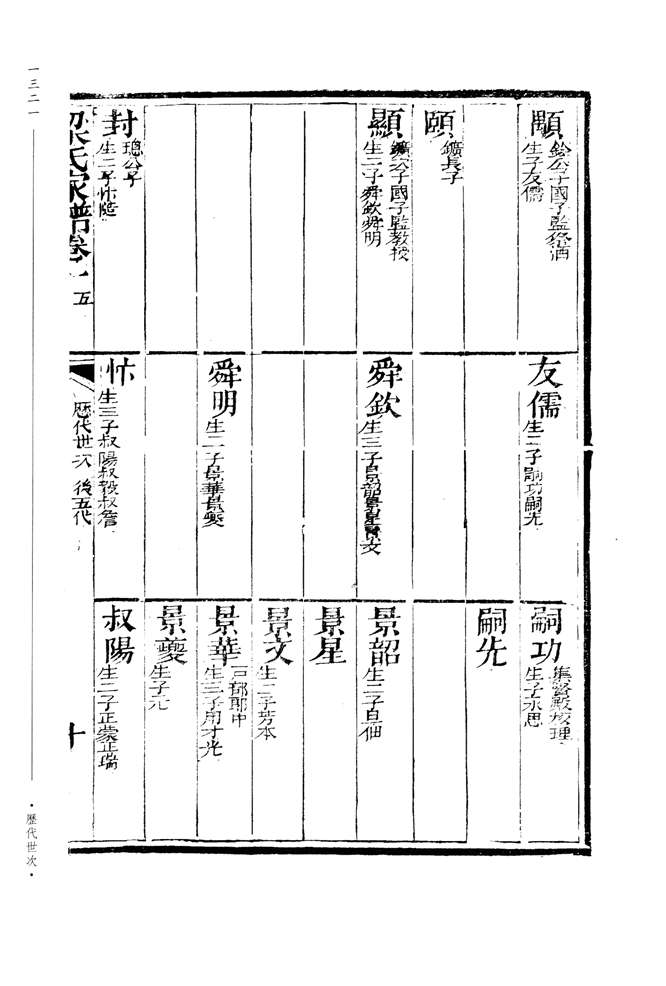 顒
鈴公子國子監祭酒
生子友儒
頤
鑛長子
顯
鑛公子國子監教授
生二子舜欽舜明
封
璁公子
友儒
生二子嗣功嗣先
舜欽
生三子景韶景星景文
舜明
生二子景華景夔
生三子叔陽叔毅叔詹
嗣功
集賢殿校理
生子永思
嗣先
景韶
景星
景文
生二子芳本
景華
戸部郎中
生三子用才光
景夔
生子元
叔陽
生二子正蒙正瑞
梁氏家譜卷
五
歷代世次 後五代
十
一三二一
·歷代世次·